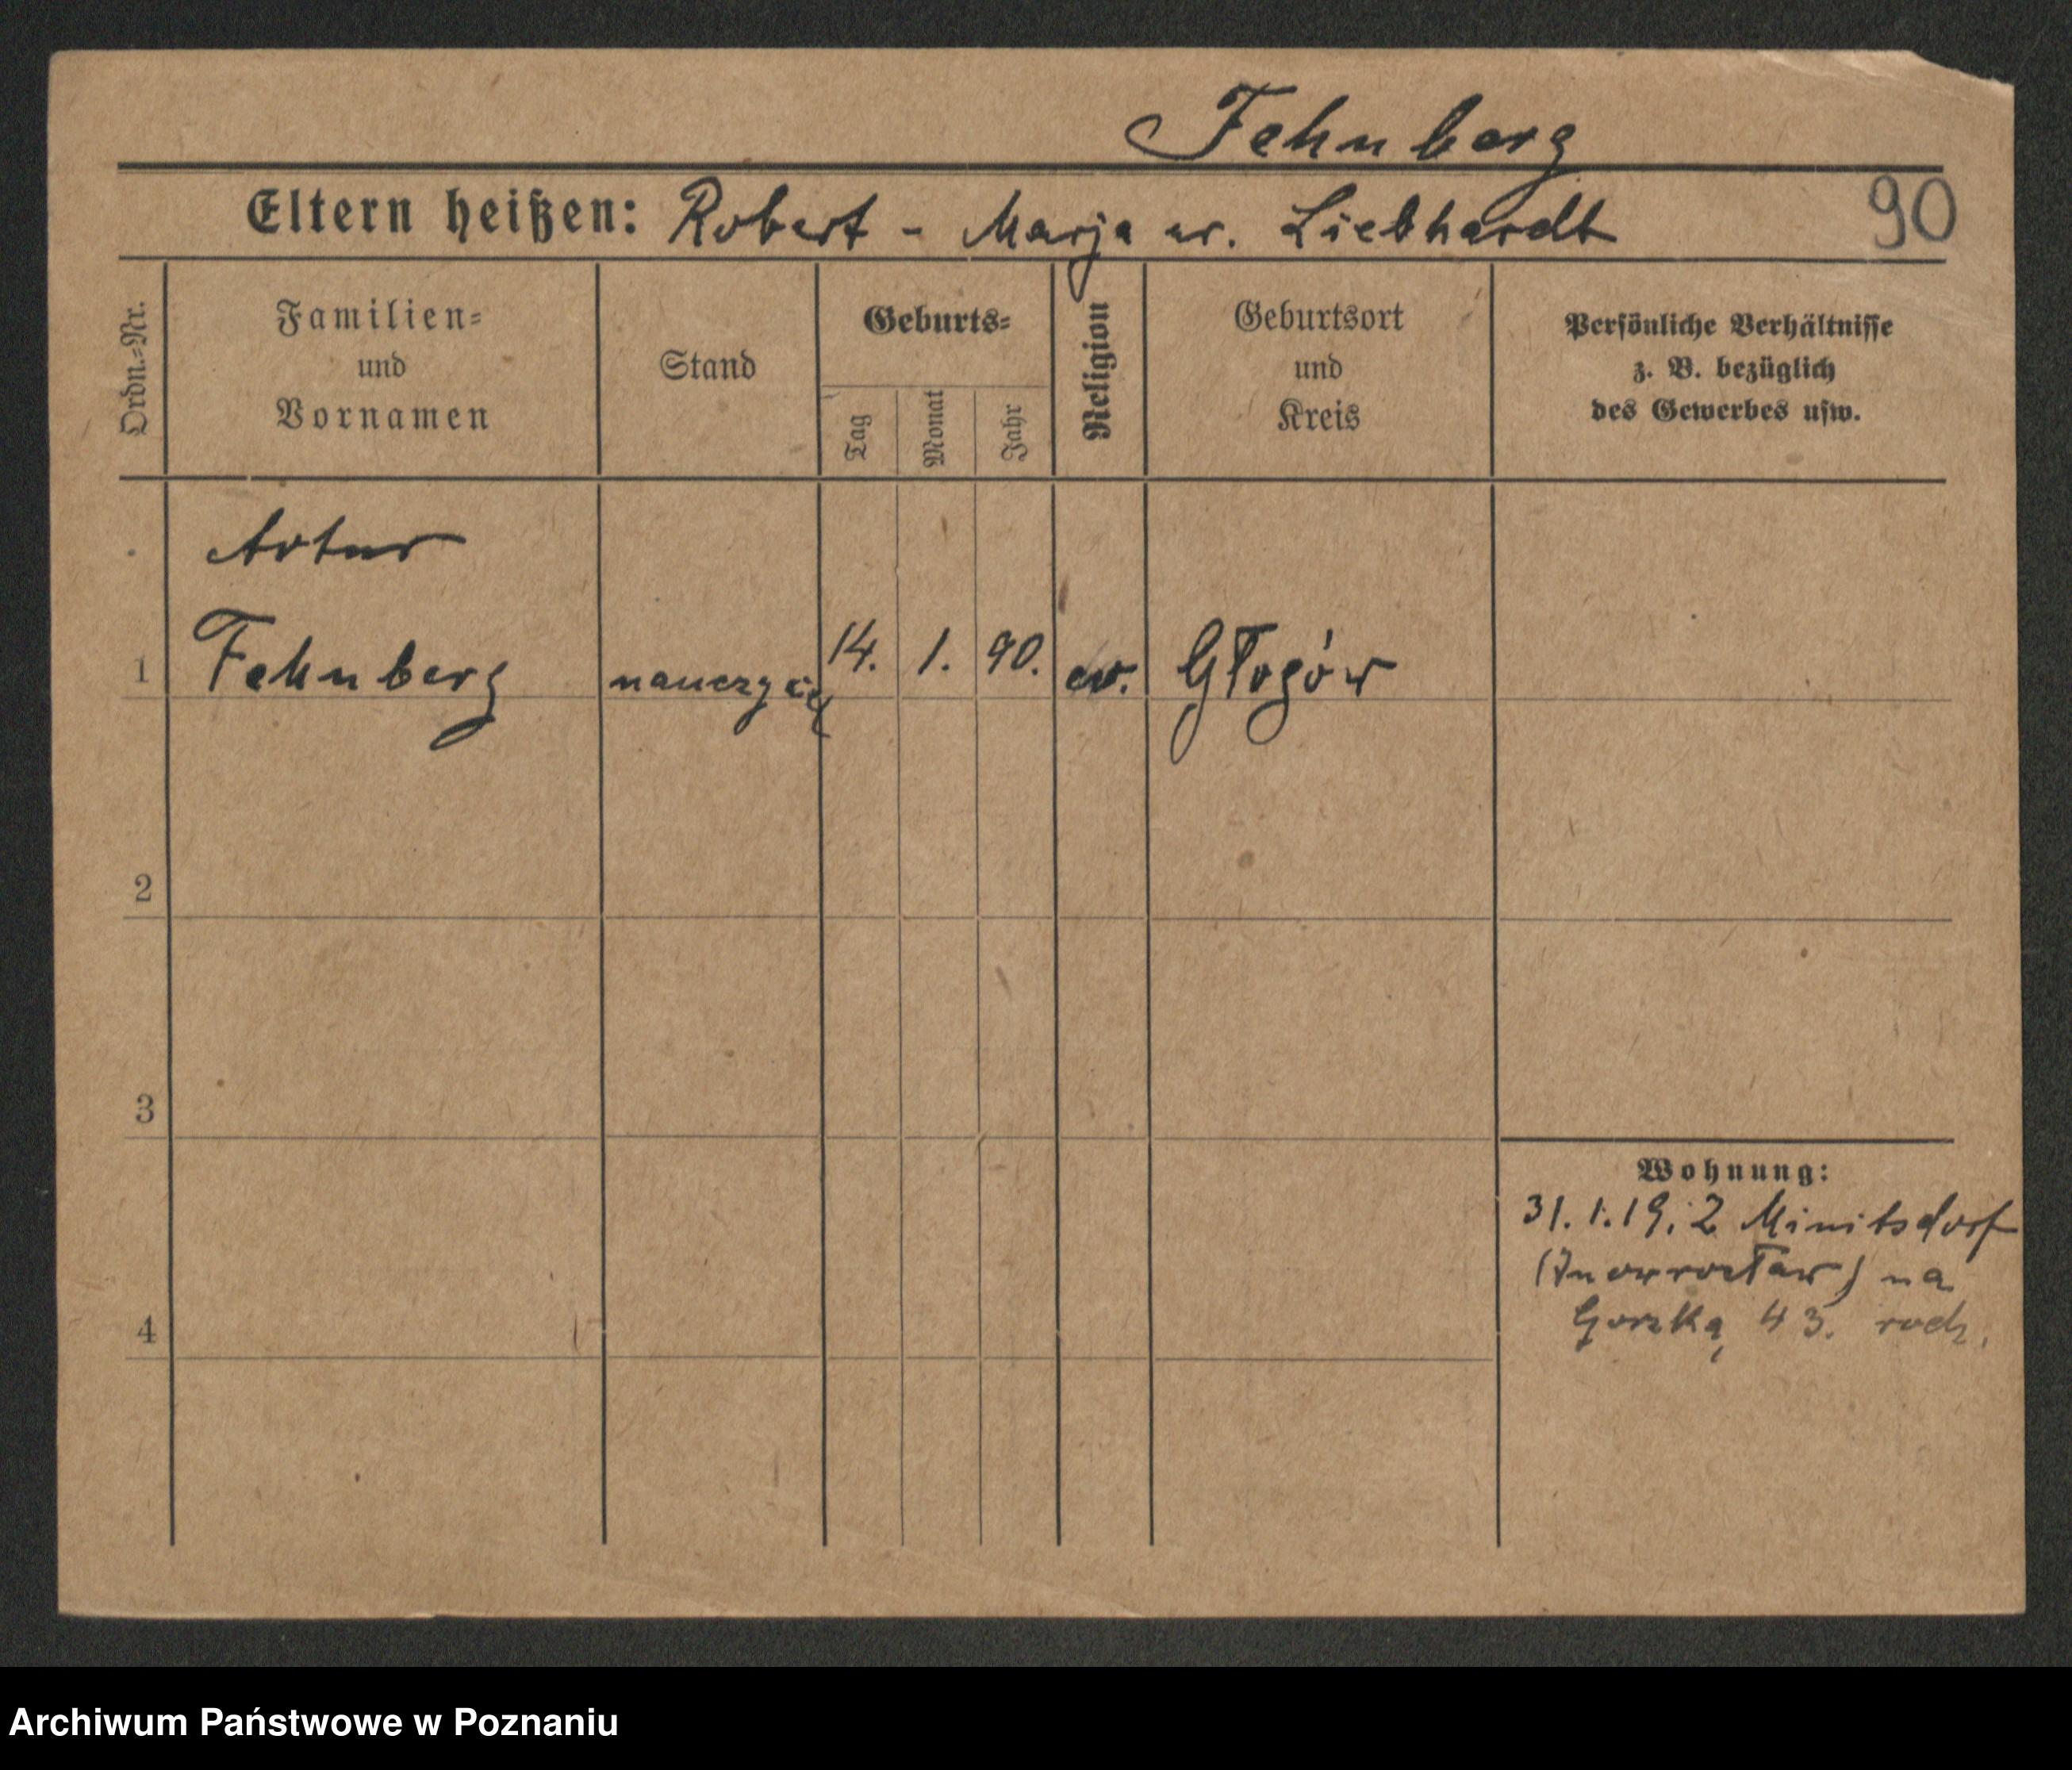 Fehnberg
Eltern heißen: Robert - Marja ur. Liebhardt 90
Ordn.-Nr.
Familien-
und
Vornamen
Stand
Geburts-
Tag
Monat
Jahr
Religion
Geburtsort
und
Kreis
Persönliche Verhältnisse
z. B. bezüglich
des Gewerbes usw.
Artur
1 Fehnberg nauczyciel 14. 1. 90. ew. Głogów
2
3
4
Wohnung:
31. 1. 19. z Minitsdorf
(Inowrocław) na
Gorzką 43. rodz.
Archiwum Państwowe w Poznaniu